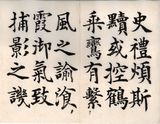 史禮煩斯
黷或控鶴
乘鸞有繫
風之諭湌
霞御氣致
捕影之談